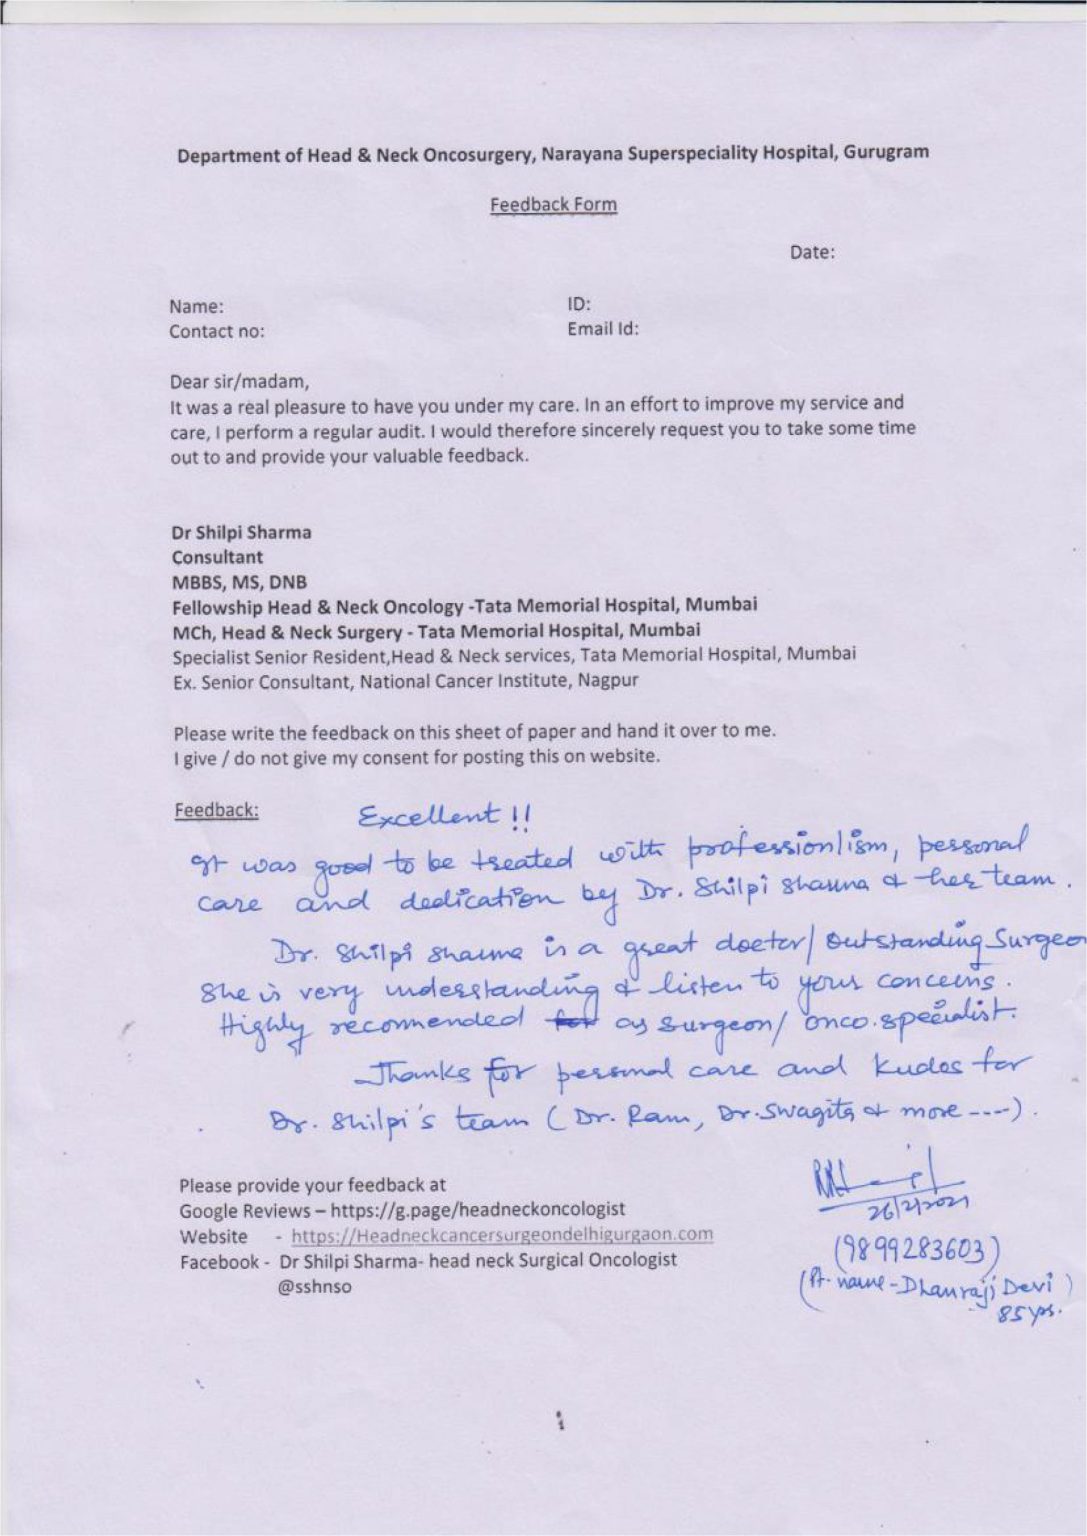 Department of Head & Neck Oncosurgery, Narayana Superspeciality Hospital, Gurugram
Feedback Form
Date:
Name: ID:
Contact no: Email Id:
Dear sir/madam,
It was a real pleasure to have you under my care. In an effort to improve my service and
care, I perform a regular audit. I would therefore sincerely request you to take some time
out to and provide your valuable feedback.
Dr Shilpi Sharma
Consultant
MBBS, MS, DNB
Fellowship Head & Neck Oncology -Tata Memorial Hospital, Mumbai
MCh, Head & Neck Surgery - Tata Memorial Hospital, Mumbai
Specialist Senior Resident,Head & Neck services, Tata Memorial Hospital, Mumbai
Ex. Senior Consultant, National Cancer Institute, Nagpur
Please write the feedback on this sheet of paper and hand it over to me.
I give / do not give my consent for posting this on website.
Feedback: Excellent !!
It was good to be treated with professionlism, personal
care and dedication by Dr. Shilpi Sharma & her team.
Dr. Shilpi Sharma is a great doctor/ outstanding Surgeo
She is very understanding & listen to your concerns.
Highly recommended for as surgeon/ onco.specialist.
Thanks for personal care and kudos for
Dr. Shilpi's team (Dr. Ram, Dr. Swagita & more ----).
Please provide your feedback at
Google Reviews – https://g.page/headneckoncologist
26/2/2021
Website - https://Headneckcancersurgeondelhigurgaon.com
(9899283603)
Facebook - Dr Shilpi Sharma- head neck Surgical Oncologist
@sshnso
(Pt. name - Dhanraji Devi)
85 yrs.